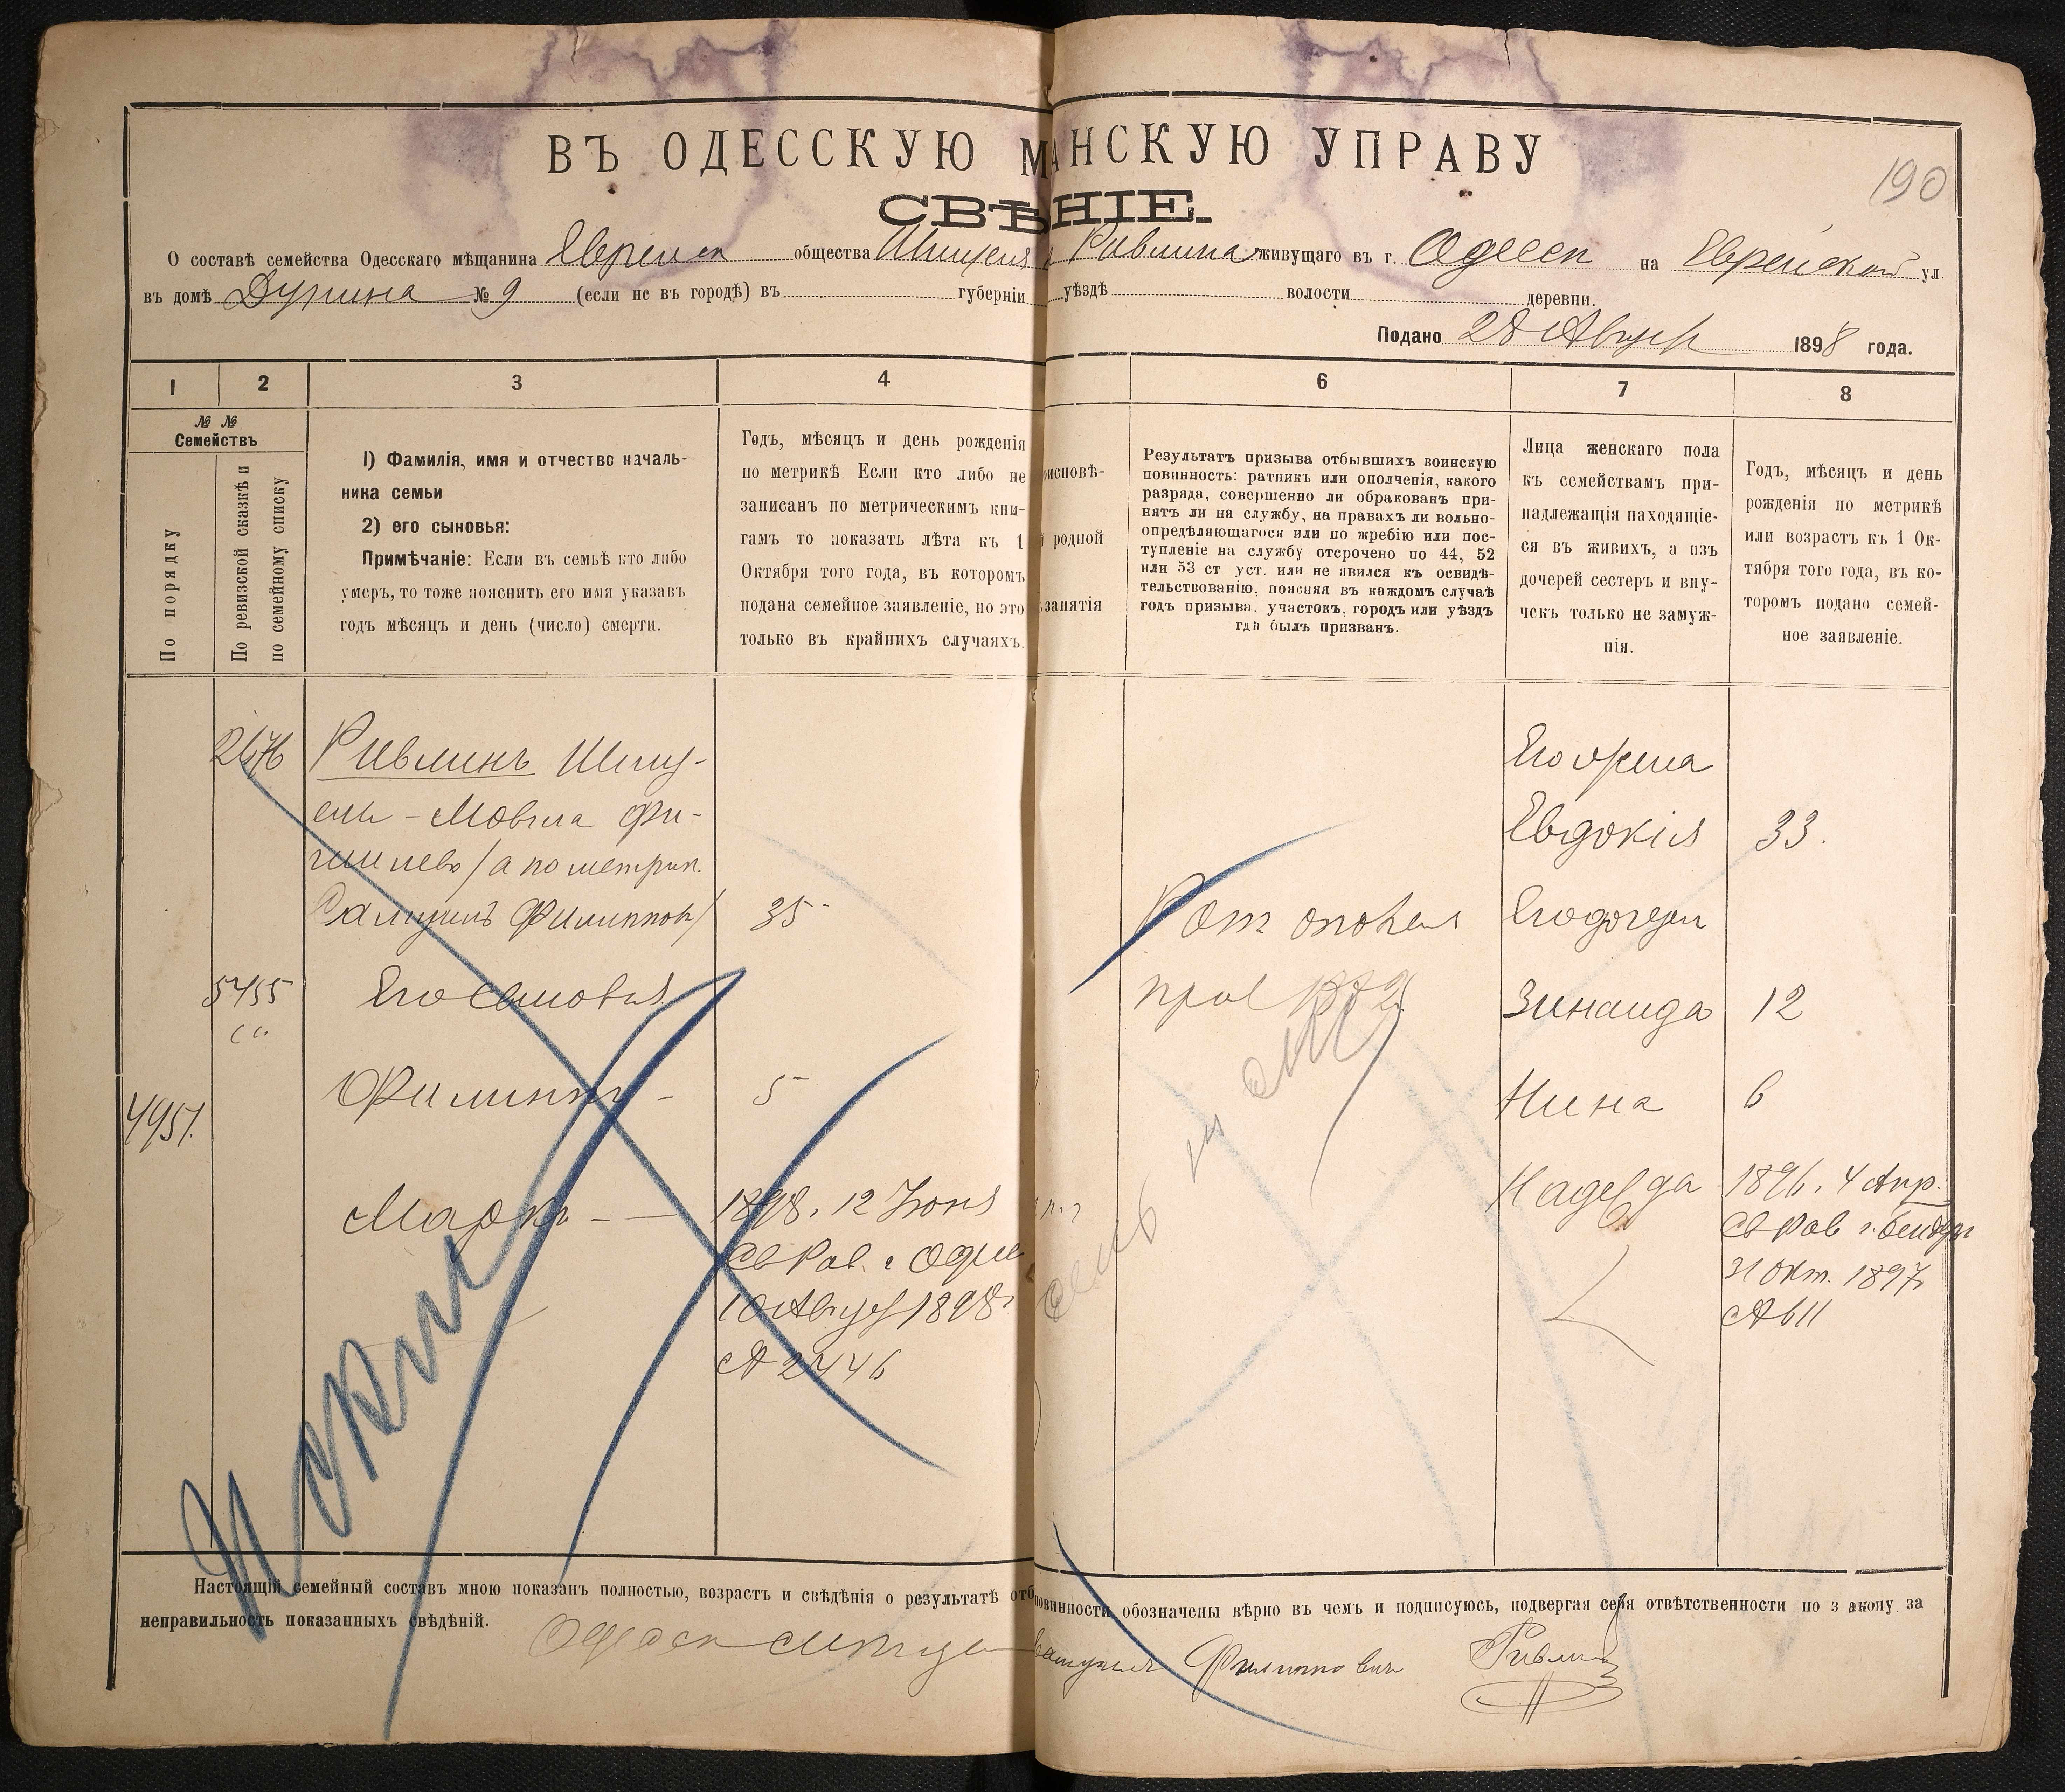 ВЪ ОДЕССКУЮ М АНСКУЮ УПРАВУ
190
СВѢ НІЕ.
О составѣ семейства Одесскаго мѣщанина Евреиск общества Шмуеля Ривлина живущаго въ г. Одессѣ на Еврейской ул.
въ домѣ Дурина № 9 (если не въ городѣ) въ губерніи уѣздѣ волости деревни.
Подано 28 Август 1898 года.
1 2 3 4 6 7 8
№ №
Семействъ
По порядку
По ревизской сказкѣ и
по семейному списку
1) Фамилія, имя и отчество началь-
ника семьи
2) его сыновья:
Примѣчаніе: Если въ семьѣ кто либо
умеръ, то тоже пояснить его имя указавъ
годъ мѣсяцъ и день (число) смерти.
Годъ, мѣсяцъ и день рожденія
по метрикѣ Если кто либо не
записанъ по метрическимъ кни-
гамъ то показать лѣта къ 1
Октября того года, въ которомъ
подана семейное заявленіе, но это
только въ крайнихъ случаяхъ.
оисповѣ-
родной
занятія
Результатъ призыва отбывшихъ воинскую
повинность: ратникъ или ополченія, какого
разряда, совершенно ли обракованъ при-
нятъ ли на службу, на правахъ ли вольно-
опредѣляющагося или по жребію или пос-
тупленіе на службу отсрочено по 44, 52
или 53 ст уст. или не явился къ освидѣ-
тельствованію, поясняя въ каждомъ случаѣ
годъ призыва, участокъ, городъ или уѣздъ
гдѣ былъ призванъ.
Лица женскаго пола
къ семействамъ при-
надлежащія находящіе-
ся въ живихъ, а изъ
дочерей сестеръ и вну-
чекъ только не замуж-
нія.
Годъ, мѣсяцъ и день
рожденія по метрикѣ
или возрастъ къ 1 Ок-
тября того года, въ ко-
торомъ подано семей-
ное заявленіе.
2676 Ривлинъ Шму-
ель-Мовша Фи-
шилевъ /а по метрик.
Самуилъ Филиппов/ 35
5455 Его сыновья
Филиппъ - 5
4951.
Маркъ - 1898. 12 Іюня
Св Рав. г Одес
10 Август 1898 г
А 2446
Рат ополч
приз
Его жена
Евдокія 33.
Его дочери
Зинаида 12
Нина 6
Надежда 1896. 4 Апр.
Св Рав г. Бендеры
31 Окт. 1897
А 611
Настоящій семейный составъ мною показанъ полностью, возрастъ и свѣдѣнія о результатѣ отб повинности обозначены вѣрно въ чемъ и подписуюсь, подвергая себя ответственности по закону за
неправильность показанныхъ свѣдѣній.
Самуилъ Филиппович Ривлин